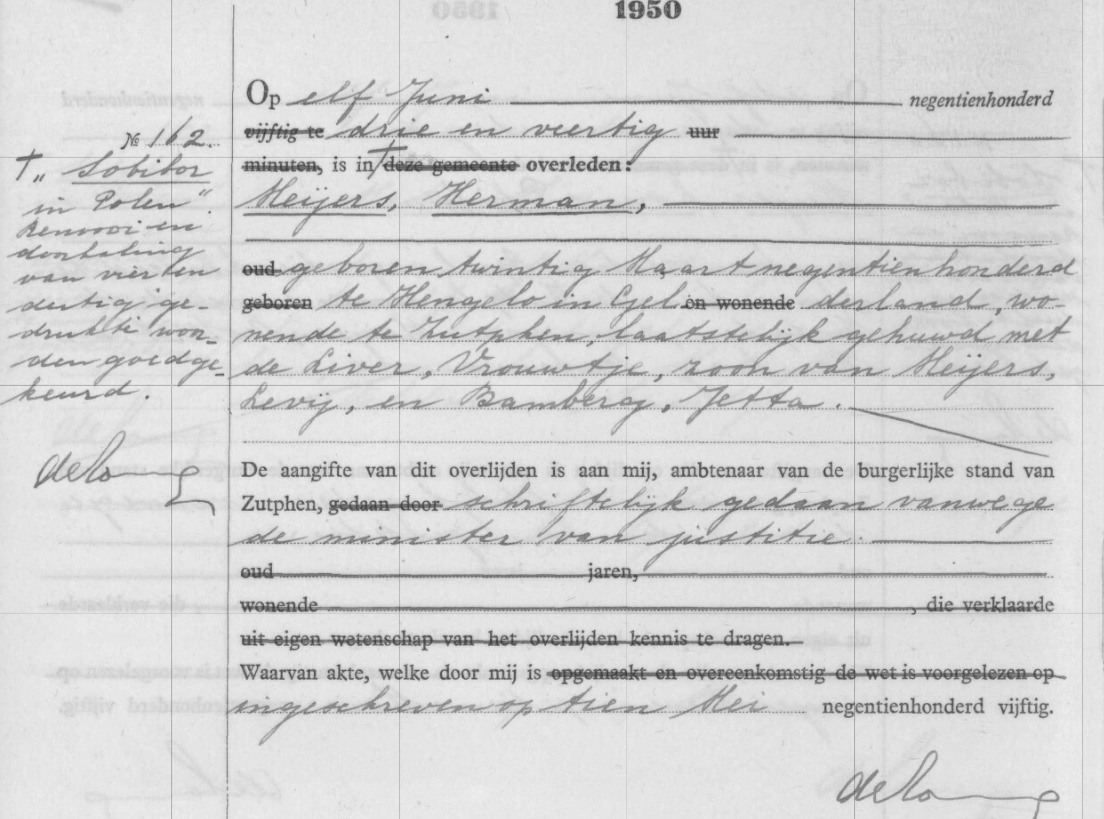 1950
Op elf Juni negentienhonderd
vijftig te drie en veertig uur
minuten, is in † deze gemeente overleden:
Meijers, Herman,
oud geboren twintig Maart negentienhonderd
geboren te Hengelo in Gel en wonende derland, wo-
nende te Zutphen, laatstelijk gehuwd met
de Liver, Vrouwtje, zoon van Meijers,
Levij, en Bamberg, Jetta.
De aangifte van dit overlijden is aan mij, ambtenaar van de burgerlijke stand van
Zutphen, gedaan door schriftelijk gedaan vanwege
de minister van justitie.
oud jaren,
wonende , die verklaarde
uit eigen wetenschap van het overlijden kennis te dragen.
Waarvan akte, welke door mij is opgemaakt en overeenkomstig de wet is voorgelezen op
ingeschreven op tien Mei negentienhonderd vijftig.
№ 162.
† „ Sobibor
in Polen".
Renvooi en
doorhaling
van vier en
dertig ge-
drukte woor-
den goedge-
keurd.